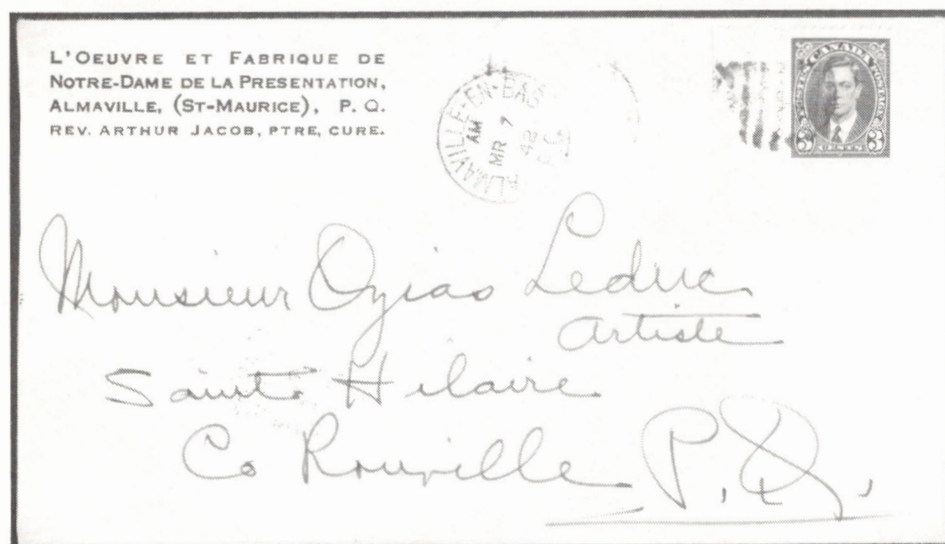 L'OEUVRE ET FABRIQUE DE
NOTRE-DAME DE LA PRESENTATION,
ALMAVILLE, (ST-MAURICE), P. Q.
REV. ARTHUR JACOB, PTRE, CURE.
ALMAVILLE-EN-BAS
AM
MR 7
42
POSTES CANADA POSTAGE
3 CENTS 3
Monsieur Ozias Leduc
artiste
Saint Hilaire
Co Rouville P.Q.